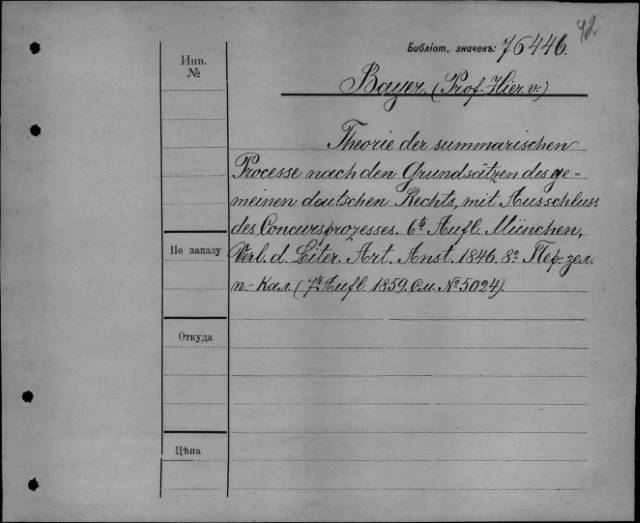 42
Библіот. значекъ: 76446.
Инв.
№
Bayer (Prof. Hier. v.)
Theorie der summarischen
Processe nach den Grundsätzen des ge-
meinen deutschen Rechts, mit Ausschluss
des Concursprozesses. 6te Aufl. München,
По заказу
Verl. d. Liter. Art. Anst. 1846. 8º. Пер. зел.
п-кал. (7te Aufl. 1859. см. № 5024).
Откуда
Цѣна